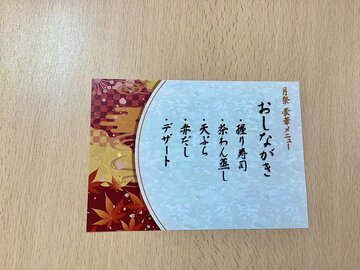 月祭 豪華メニュー
おしながき
・握り寿司
・茶わん蒸し
・天ぷら
・赤だし
・デザート